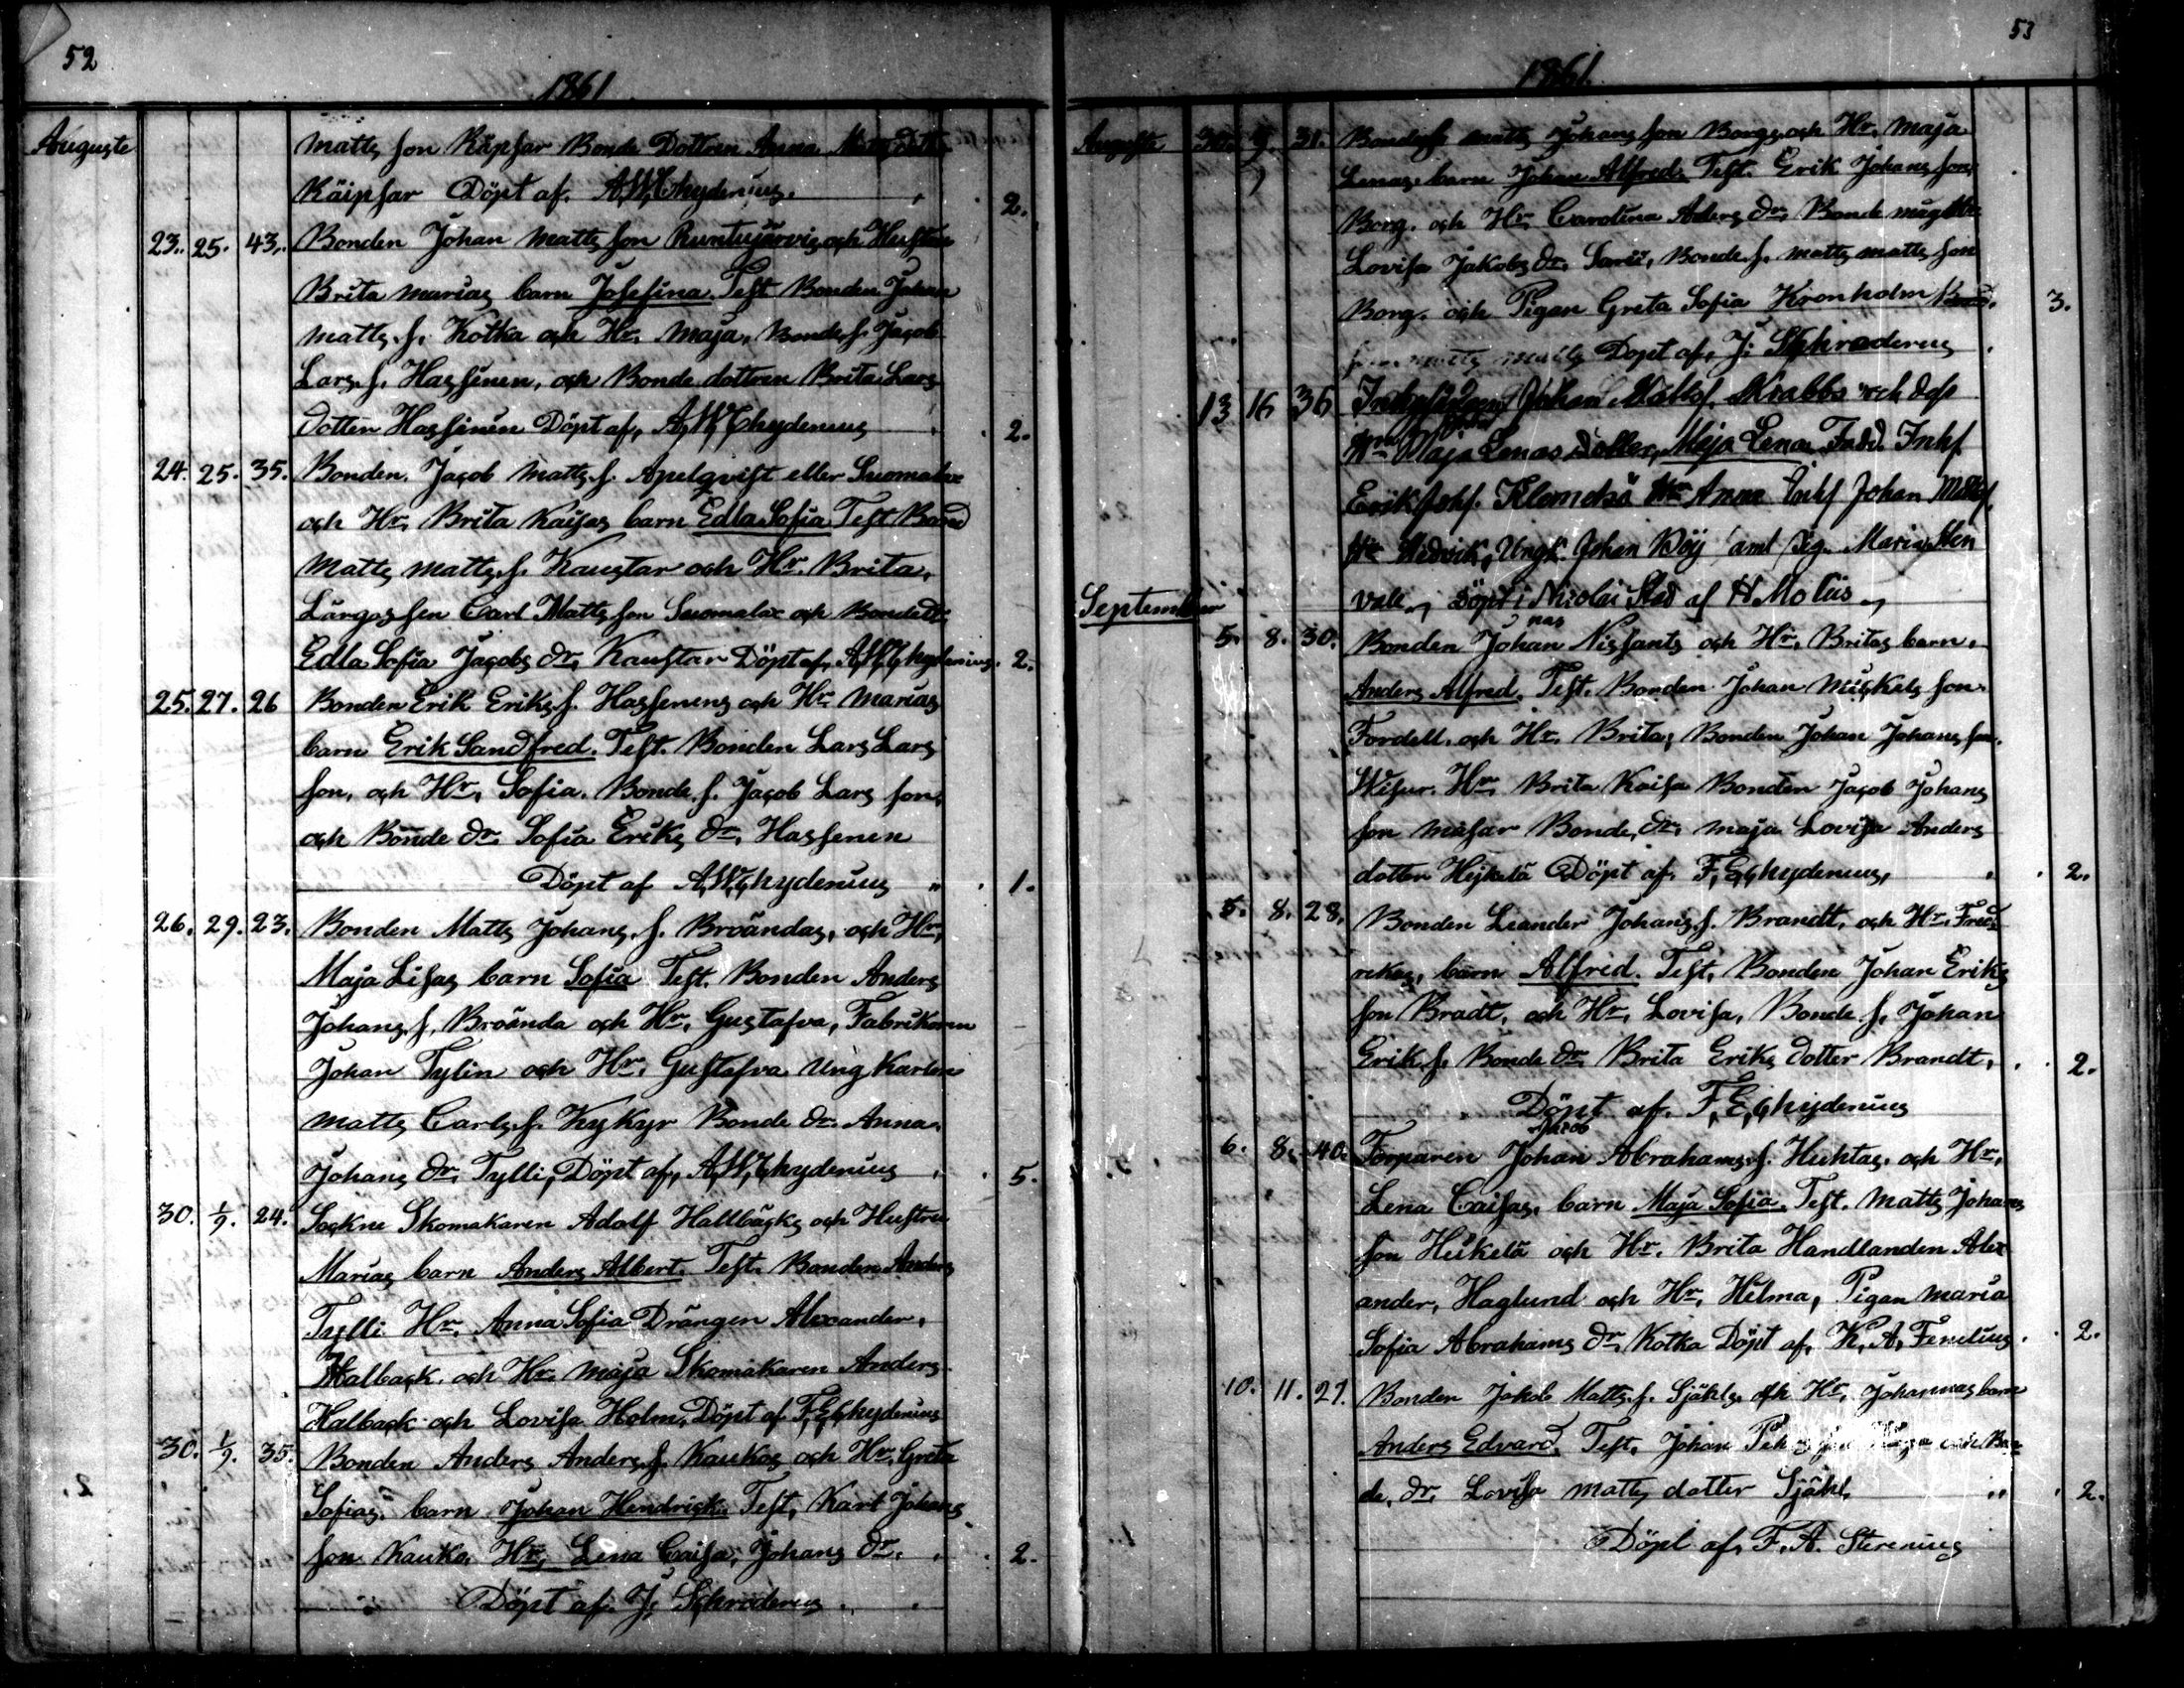 52
1861
Auguste
Matts son Käpsar Bonde Dottren Anna Matts dottr
Käipsar Döpt af. A,W,Chydenius. 2.
23. 25. 43. Bonden Johan Matts son Runtujärvis och Hustru
Brita Marias barn Josefina. Test Bonden Johan
Matts. s. Kotka och Hr. Maja, Bonde s. Jacob
Lars. s. Hassinen, och Bonde dottren Brita Lars
dotter Hassinen Döpt af, A,W,Chydenius 2.
24. 25. 35. Bonden. Jacob Matts. s. Apelqvist eller Suomalax
och Hr, Brita Kaisas barn Edla Sofia Test Bond
Matts Matts. s. Kaustar och Hr. Brita,
Largos sen Carl Matts son Suomalax och Bonde dr.
Edla Sofia Jacobs dr, Kaustar Döpt af, A,W,Chydenius. 2.
25. 27. 26 Bonden Erik Eriks. s. Hassenens och Hr Marias
barn Erik Sandfred. Test. Bonden Lars Lars
son, och Hr, Sofia. Bonde. s. Jacob Lars son,
och Bonde dr. Sofia Eriks dr, Hassenen
Döpt af A,W,Chydenius " 1.
26. 29. 23. Bonden Matts Johans. s. Broändas, och Hr,
Maja Lisas barn Sofia Test. Bonden Anders
Johans. s, Broända och Hr, Gustafva, Fabrikoren
Johan Tylin och Hr. Gustafva Ung Karlen
Matts Carls. s. Kykyr Bonde dr. Anna
Johans dr. Tylli, Döpt af, A,W,Chydenius 5.
30. 1/9. 24. Sockne Skomakaren Adolf Hallbäcks och Hustru
Marias barn Anders Albert. Test. Bonden Anders
Tylli Hr, Anna Sofia Drängen Alexander,
Halback. och Hr. Maja Skomakaren Anders
Halback och Lovisa Holm, Döpt af F,E,Chydenius
30. 1/9. 35. Bonden Anders Anders. s. Kaukos och Hr. Greta
Sofias. barn Johan Hendrick. Test, Karl Johans
son Kauko Hr, Lena Caisa, Johans dr. 2.
Döpt af. J, Schroderus
53
1861.
Auguste 30. 31. Bonden Matts Johans son Borgs. och Hr, Maja
Lenas. barn Johan Alfred. Test. Erik Johans son
Borg. och Hr, Carolina Anders dr, Bonde
Lovisa Jakobs dr, Bonde. s. Matts Matts son
Borg. och Pigan Greta Sofia Kronholm 3.
Döpt af, J: Schroderus
13 16 36 Johan Mattss. Krabbs och dess
Hru Maja Lenas dotter, Maja Lena Fadd. Inhs
Erik Johs. Klemetsö Hr Anna Inhs Johan Mattss.
Hr Hedvik, Ungk. Johan Böij samt Pig. Maria Sten
vall, Döpt i Nicolai Stad af H Molüs
September
5. 8. 30. Bonden Johan nas Nissants och Hr, Britas barn,
Anders Alfred. Test. Bonden Johan Mickels son
Fordell. och Hr. Brita, Bonden Johan Johans son
Wisur. Hr. Brita Kaisa Bonden Jacob Johans
son Masar Bonde, dr, Maja Lovisa Anders
dotter Hejkelä Döpt af. F,E,Chydenius, 2.
5. 8. 28. Bonden Leander Johans. s. Brandt, och Hr. Fred
rikas, barn Alfred. Test, Bonden Johan Eriks
son Bradt, och Hr, Lovisa, Bonde s, Johan
Erik. s. Bonde dr. Brita Eriks dotter Brandt, 2.
Döpt af. F,E,Chydenius
6. 8. 40. Torparen Johan Jacob Abrahams. s. Huhtas. och Hr,
Lena Caisas, barn Maja Sofia, Test. Matts Johans
son Heikelä och Hr. Brita Handlanden Alex
ander, Haglund och Hr, Helma, Pigan Maria
Sofia Abrahams dr, Kotka Döpt af, K, A, Femlius. 2.
10. 11. 27. Bonden Jakob Matts. s. Sjähls. och Hr, Johannas barn
Anders Edvard. Test, Johan och Bon
de, dr. Lovisa Matts dotter Sjähl, " 2.
Döpt af, F. A. Sterenius